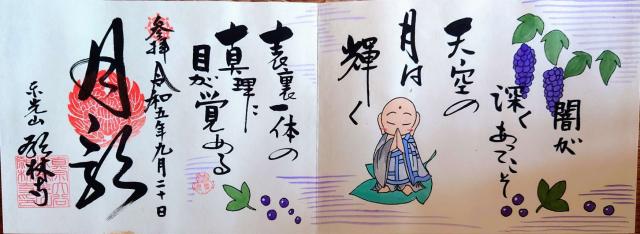 闇が
深くあってこそ
天空の
月は
輝く
表裏一体の
真理に
目が覚める
参拝 令和五年九月二十日
月影
東光山
林寺